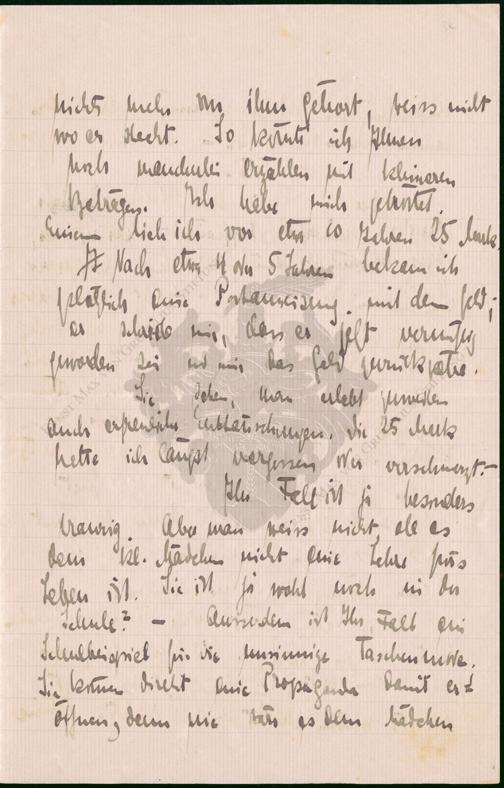 nichts mehr von ihm gehört, weiss nicht
wo er steckt. So könnte ich Ihnen
noch mancherlei erzählen mit kleineren
Beträgen. Ich habe mich getröstet.
Einem lieh ich vor etwa 10 Jahren 25 Mark.
Nach etwa 4 oder 5 Jahren bekam ich
plötzlich eine Postanweisung mit dem Geld;
er schrieb mir, dass er jetzt vernünftig
geworden sei und mir das Geld zurückzahle.
Sie sehen, man erlebt zuweilen
auch erfreuliche Enttäuschungen. Die 25 Mark
hatte ich längst vergessen oder verschmerzt.–
Ihr Fall ist ja besonders
traurig. Aber man weiss nicht, ob es
dem kl. Mädchen nicht eine Lehre fürs
Leben ist. Sie ist ja wohl noch in der
Schule? – Ausserdem ist Ihr Fall ein
Schulbeispiel für die unsinnige Taschenmode.
Sie können direkt eine Propaganda damit er=
öffnen, denn nie wäre es dem Mädchen